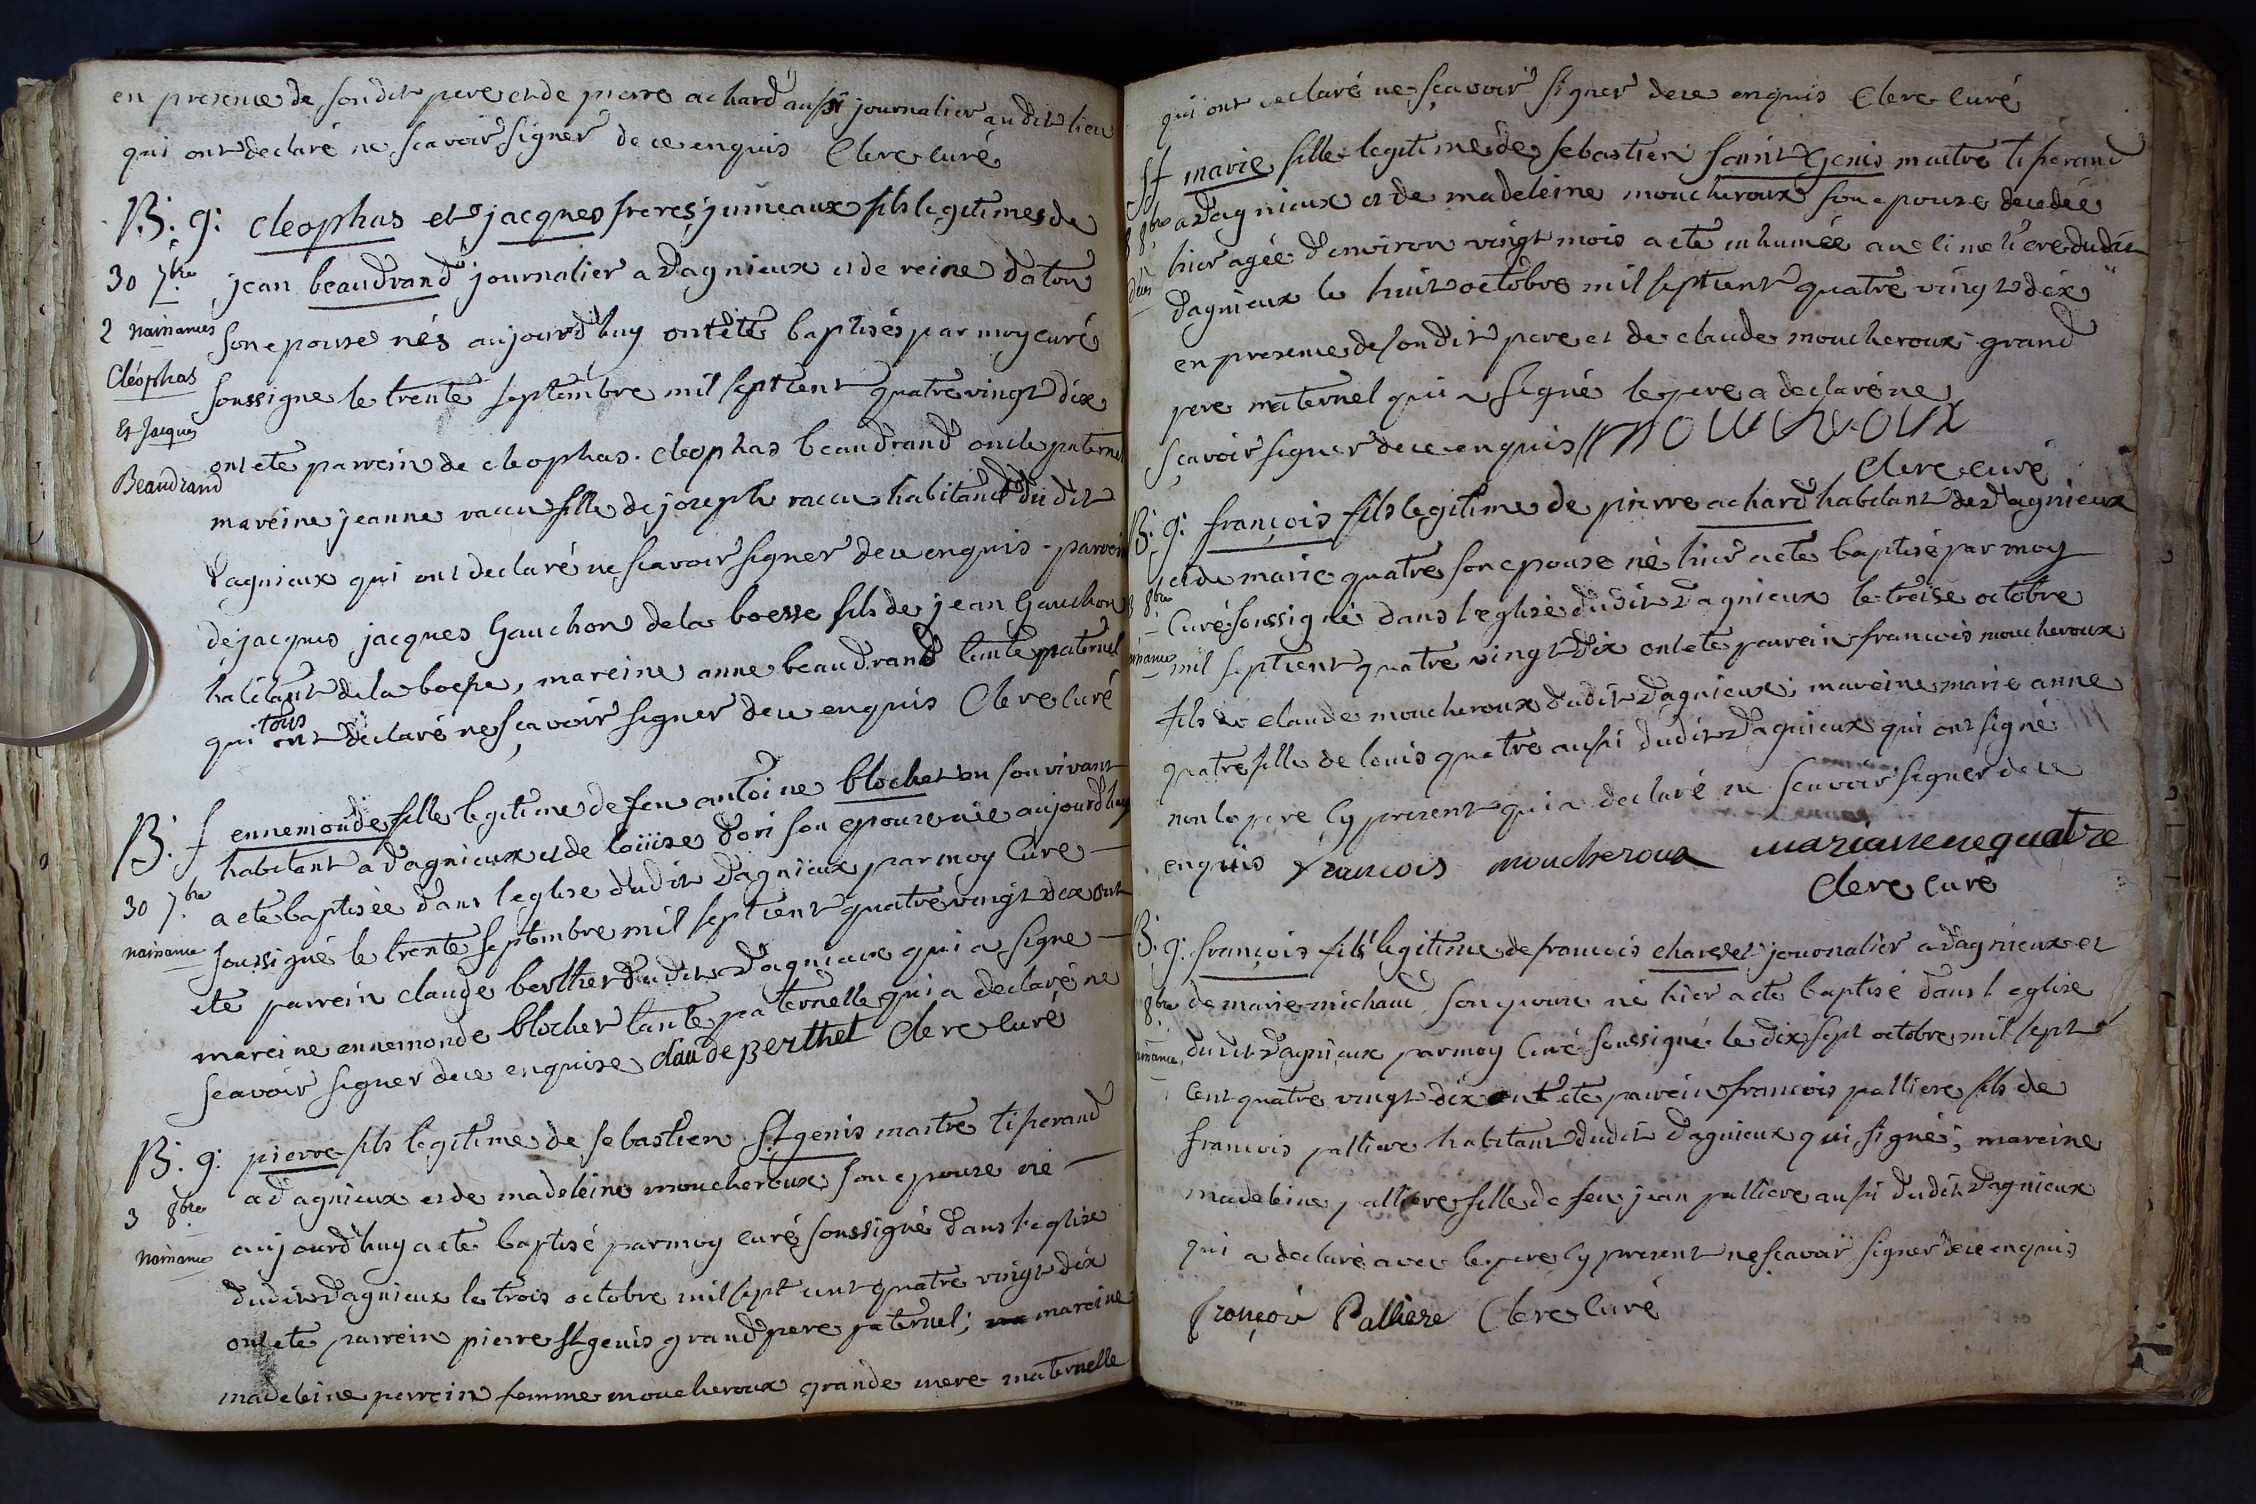 en presence de sondit pere et de pierre achard aussi journalier audit lieu
qui ont declaré ne scavoir signer de ce enquis Clerc curé
B. g. cleophas et jacques freres jumeaux fils legitimes de
30 7bre jean beaudrand journalier a dagnieux et de reine daton
2 naissances son epouse nés aujourdhuy ont été baptisés par moy curé
Cléophas soussigne le trente septembre mil sept cent quatre vingt dix
Et Jacques ont ete parrein de cleophas cleophas beaudrand oncle paternel
Beaudrand mareine jeanne raccu fille de joseph raccu habitand du dit
dagnieux qui ont declaré ne scavoir signer de ce enquis parrein
de jacques jacques Gauchon de la boesse fils de jean Gauchon
habitant de la boesse, mareine anne beaudrand tante paternel
qui tous ont declaré ne scavoir signer de ce enquis Clerc curé
B. f ennemonde fille legitime de feu antoine blochet en son vivant
habitant a dagnieux et de loüise dori son epouse née aujourdhuy
30 7bre a ete baptisée dans leglise dudit dagnieux par moy Cure
naissance soussigné le trente septembre mil sept cent quatre vingt dix ont
ete parrein claude berthet dudit dagnieux qui a signe
mareine ennemonde blochet tante paternelle qui a declaré ne
scavoir signer de ce enquise claude Berthet Clerc curé
B. g. pierre fils legitime de sebastien St genis maitre tisserand
3 8bre a dagnieux et de madeleine moucheroux son epouse né
naissance aujourdhuy a ete baptisé par moy curé soussigné dans l'eglise
dudit dagnieux le trois octobre mil sept cent quatre vingt dix
ont ete parrein pierre St genis grand pere paternel; mareine
madeleine perrein femme moucheroux grande mere maternelle
qui ont declaré ne sçavoir signer de ce enquis Clerc Curé
Sf marie fille legitime de sebastien saint Genis maitre tisserand
8 8bre a dagnieux et de madeleine moucheroux son epouse decedée
décès hier agée d'environ vingt mois a eté inhumée au cimetiere dudit
dagnieux le huit octobre mil sept cent quatre vingt dix
en presence de son dit pere et de claude moucheroux grand
pere maternel qui a signé le pere a declaré ne
sçavoir signer de ce enquis moucheroux
Clerc curé
B. g. françois fils legitime de pierre achard habitant de dagnieux
8bre et de marie quatre son epouse né hier a eté baptisé par moy
Curé soussigné dans l'eglise dudit dagnieux le treise octobre
mil sept cent quatre vingt dix ont ete parrein francois moucheroux
fils de claude moucheroux dudit dagnieux; mareine marie anne
quatre fille de louis quatre aussi dudit dagnieux qui ont signé
non le pere cy present qui a declaré ne scavoir signer de ce
enquis francois moucheroux marianne quatre
Clerc curé
B. g. françois fils legitime de francois charvet journalier a dagnieux et
8bre de marie michaud son epouse né hier a ete baptisé dans l eglise
dudit dagnieux par moy Curé soussigné le dix sept octobre mil sept
Cent quatre vingt dix ont ete parrein francois palliere fils de
francois palliere habitant dudit dagnieux qui signé; mareine
madeleine palliere fille de feu jean palliere aussi dudit dagnieux
qui a declaré avec le pere cy present ne scavoir signer de ce enquis
françois Palliere Clerc Curé